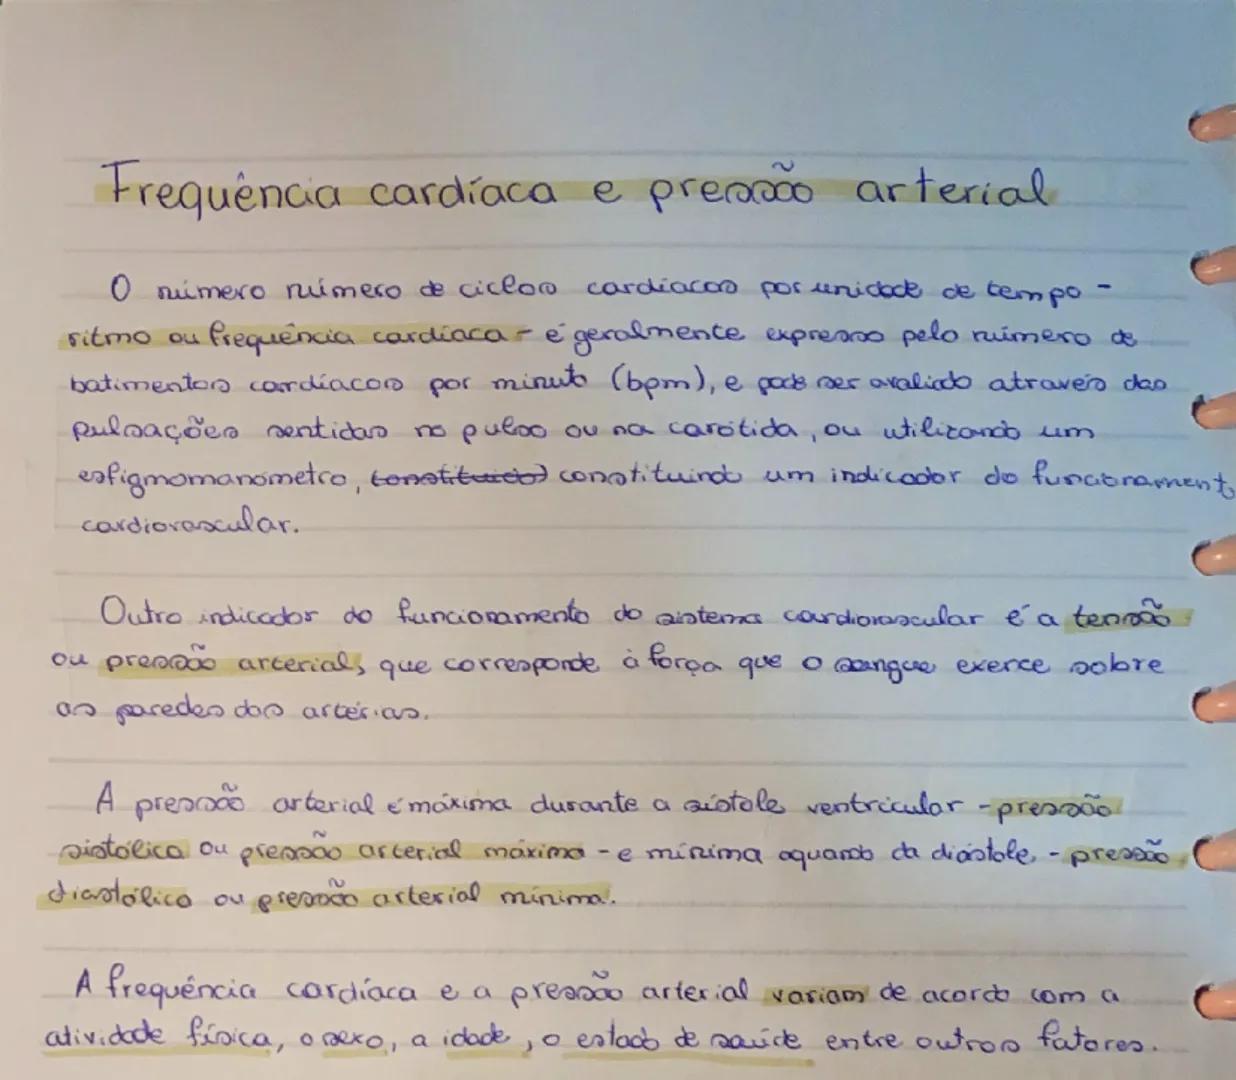 Frequência cardíaca e pressão arterial
O número número de ciclos cardíacos por unidade de tempo -
ritmo ou frequência cardíaca - é geralmente expresso pelo número de
batimentos cardíacos por minuto (bpm), e pode ser avaliado através das
pulsações sentidas no pulso ou na carótida, ou utilizando um
esfigmomanómetro, constituido constituindo um indicador do funcionamento
cardiovascular.
Outro indicador do funcionamento do sistema cardiovascular é a tensão
ou pressão arterial, que corresponde à força que o sangue exerce sobre
as paredes das artérias.
A pressão arterial é máxima durante a sístole ventricular - pressão
sistólica ou pressão arterial máxima - e mínima aquando da diástole, - pressão
diastólica ou pressão arterial mínima.
A frequência cardíaca e a pressão arterial variam de acordo com a
atividade física, o sexo, a idade, o estado de saúde entre outros fatores.